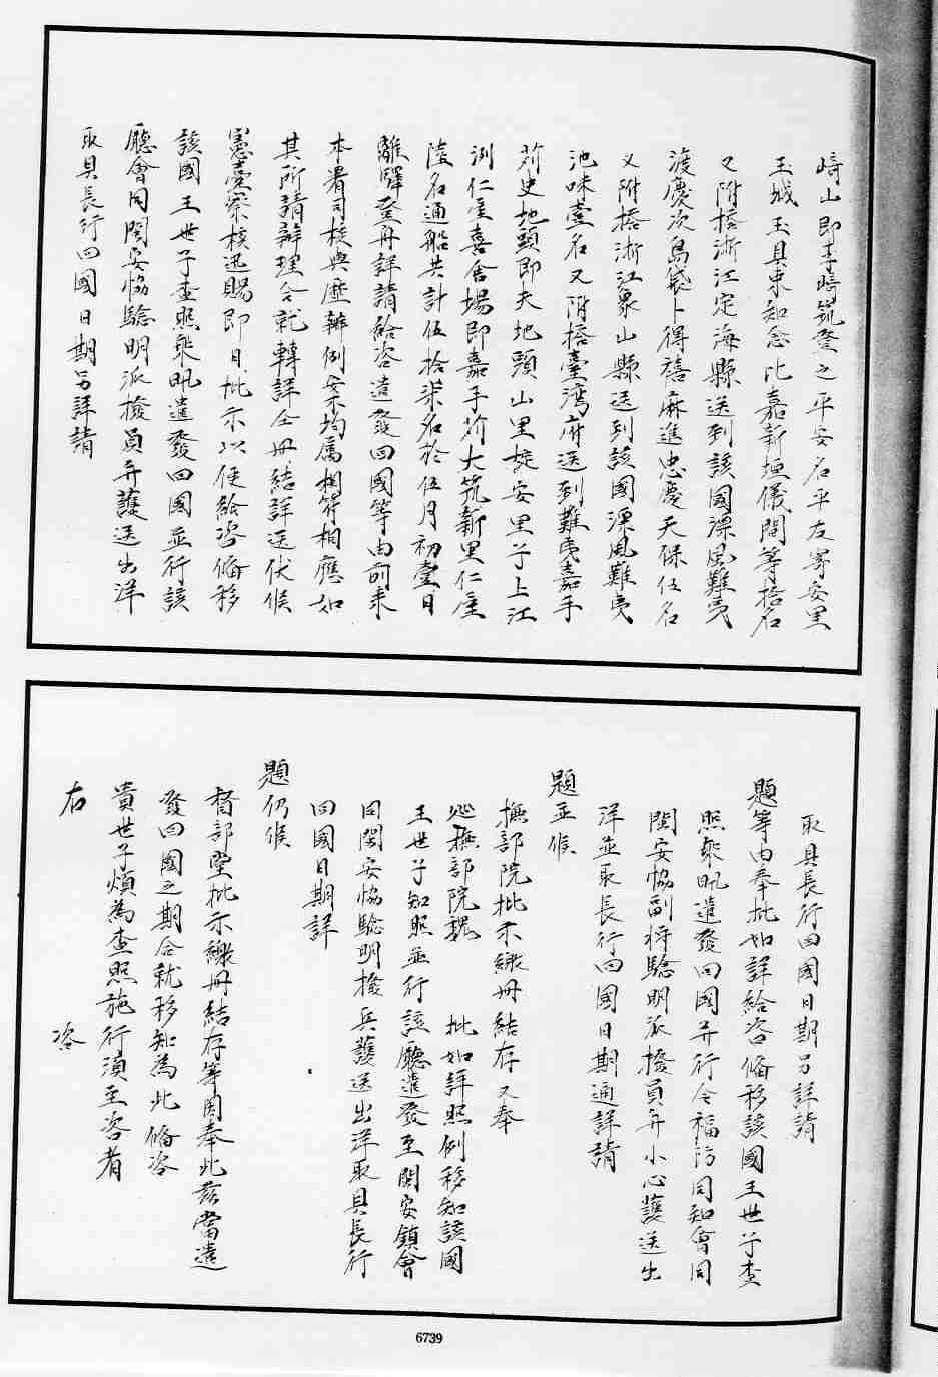 崎山即李崎筑登之平安名平友寄安里
玉城玉具東知念比嘉新垣儀間等拾名
又附搭浙江定海縣送到該國漂風難夷
渡慶次島袋卜得禧麻進忠慶天保伍名
又附搭浙江象山縣送到該國漂風難夷
池味壹名又附搭臺灣府送到難夷嘉手
苅史地頭即夫地頭山里掟安里子上江
洌仁屋喜舍場即嘉手苅大筑新里仁屋
陸名通船共計伍拾柒名於伍月初壹日
離驛登舟詳請給咨遣發回國等由前來
本署司核與歷辦例案均屬相符相應如
其所請辦理合就轉詳仝冊結詳送伏候
憲臺察核迅賜即日批示以便給咨俻移
該國王世子查照乘帆遣發回國並行該
廳會同閩安協驗明派撥員弁護送出洋
取具長行回國日期另詳請
取具長行回國日期另詳請
題等由奉批如詳給咨俻移該國王世子查
照乘帆遣發回國并行令福防同知會同
閩安協副將驗明派撥員弁小心護送出
洋並取長行回國日期通詳請
題並候
撫部院批示繳冊結存又奉
巡撫部院魏 批如詳照例移知該國
王世子知照並行該廳遣發至閩安鎮會
同閩安協驗明撥兵護送出洋取具長行
回國日期詳
題仍候
督部堂批示繳冊結存等因奉此茲當遣
發回國之期合就移知為此俻咨
貴世子煩為查照施行須至咨者
右 咨
6739